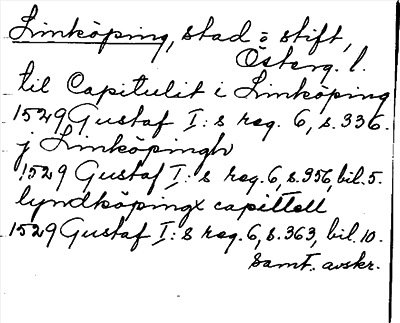 Linköping, stad o stift,
Österg. l.
til Capitulit i Linköping
1529 Gustaf I:s reg. 6, s. 336.
j Linköpingh
1529 Gustaf I:s reg. 6, s. 356, bil. 5.
lyndköpingx capittell
1529 Gustaf I:s reg. 6, s. 363, bil. 10.
samt. avskr.